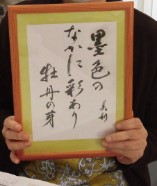 墨色の
なかに彩あり
牡丹の芽